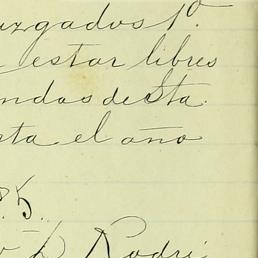 uzgados 1º.
estar libres
ndas de Sta.
sta el año
85.
Rodri